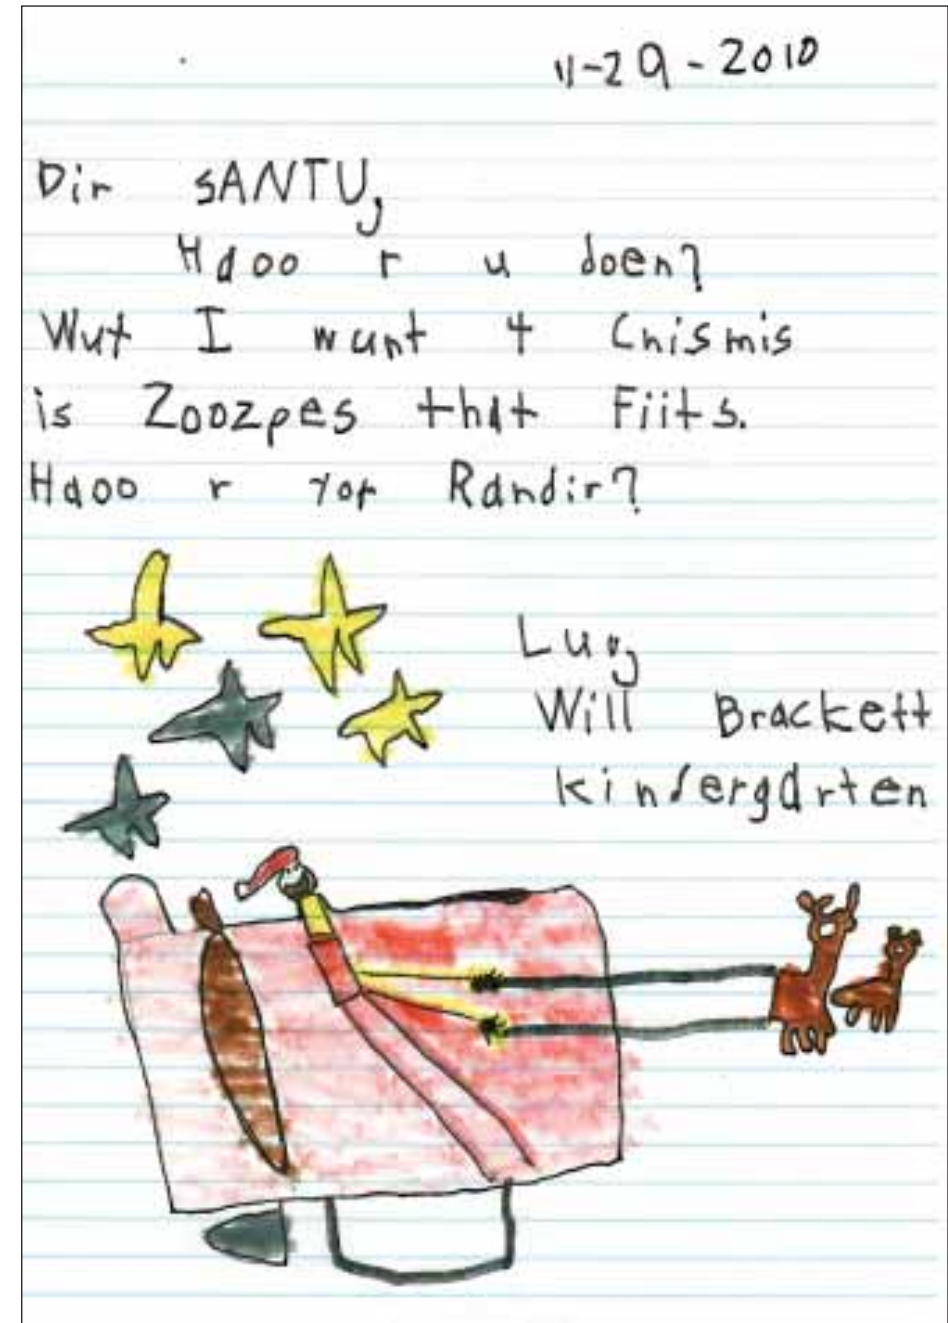 11-29-2010
Dir SANTU,
Haoo r u doen?
Wut I wunt 4 Chismis
is Zoozpes that Fiits.
Haoo r yor Randir?
Luv,
Will Brackett
kindergarten